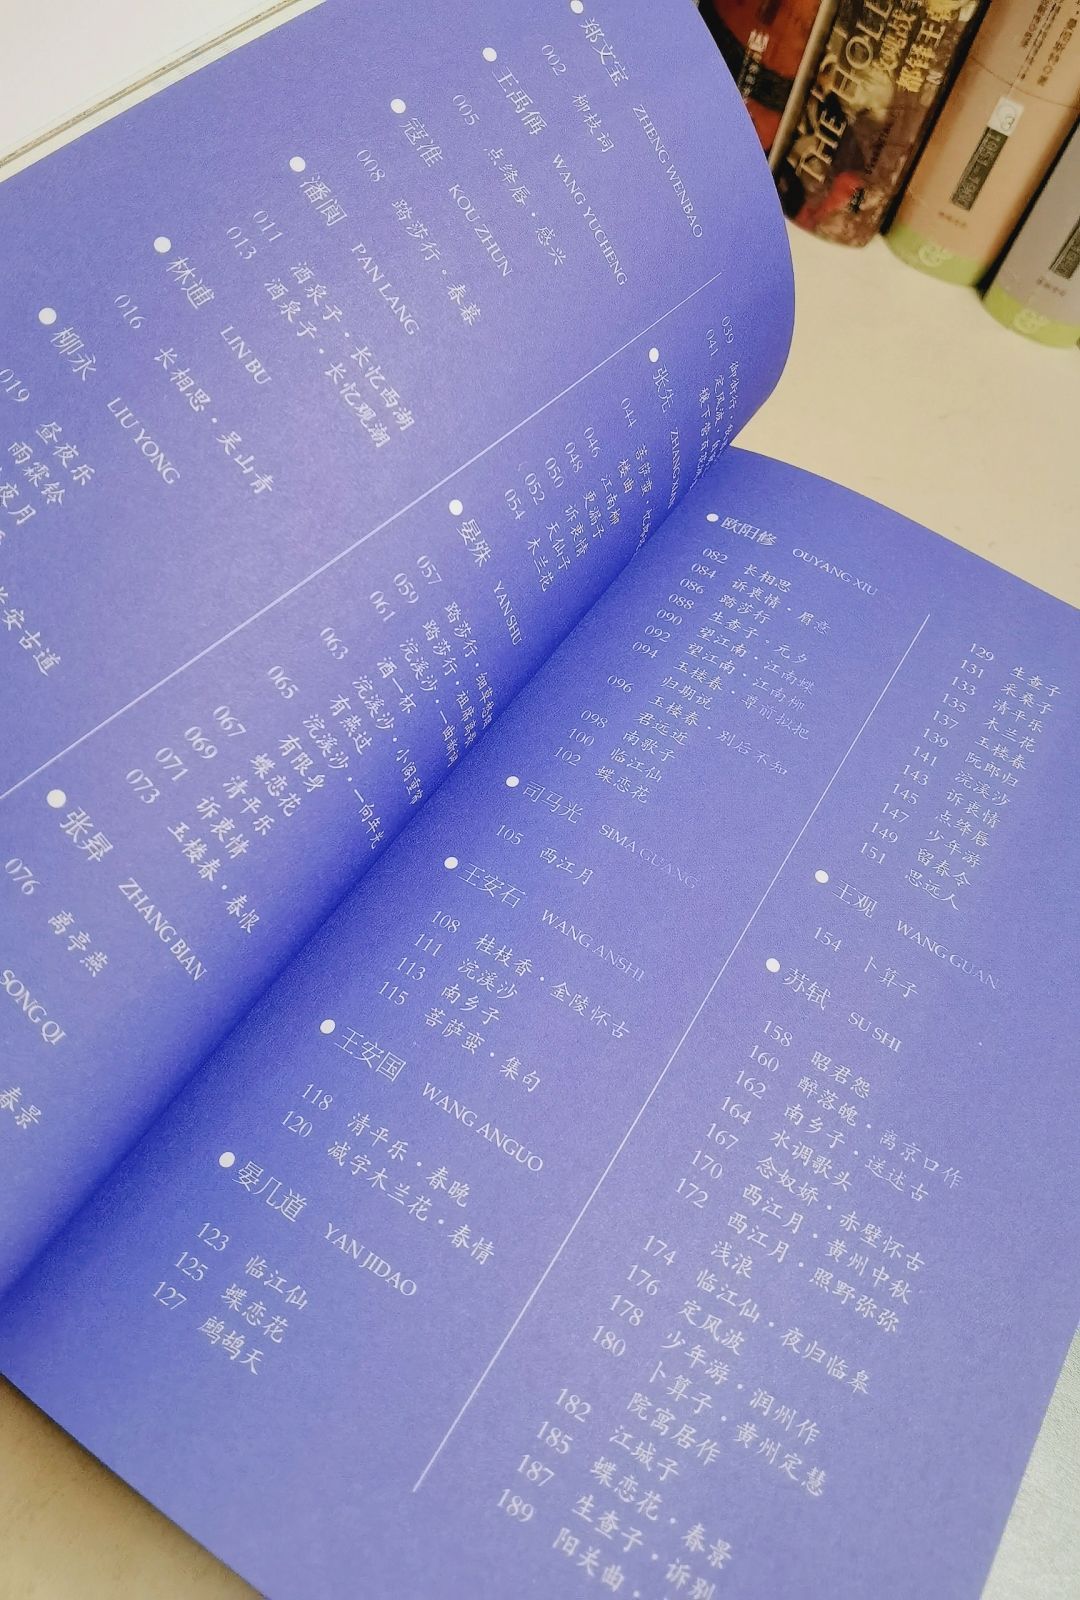 郑文宝 ZHENG WENBAO
002 柳枝词
王禹偁 WANG YUCHENG
005 点绛唇·感兴
寇准 KOU ZHUN
008 踏莎行·春暮
潘阆 PAN LANG
011 酒泉子·长忆西湖
013 酒泉子·长忆观潮
林逋 LIN BU
016 长相思·吴山青
柳永 LIU YONG
019 昼夜乐
雨霖铃
夜月
长安古道
039 御街行
041 定风波
张先
044 菩萨蛮
046 江南柳
048 更漏子
050 诉衷情
052 天仙子
054 木兰花
晏殊 YAN SHU
057 踏莎行·细草愁烟
059 踏莎行·祖席离歌
061 浣溪沙·一曲新词
酒一杯
063 浣溪沙·小阁重帘
有燕过
065 浣溪沙·一向年光
有限身
067 蝶恋花
069 清平乐
071 诉衷情
073 玉楼春·春恨
张昪 ZHANG BIAN
076 离亭燕
SONG QI
春景
欧阳修 OUYANG XIU
082 长相思
084 诉衷情·眉意
086 踏莎行
088 生查子·元夕
090 望江南·江南蝶
092 望江南·江南柳
094 玉楼春·尊前拟把
归期说
096 玉楼春·别后不知
君远近
098 南歌子
100 临江仙
102 蝶恋花
司马光 SIMA GUANG
105 西江月
王安石 WANG ANSHI
108 桂枝香·金陵怀古
111 浣溪沙
113 南乡子
115 菩萨蛮·集句
王安国 WANG ANGUO
118 清平乐·春晚
120 减字木兰花·春情
晏几道 YAN JIDAO
123 临江仙
125 蝶恋花
127 鹧鸪天
129 生查子
131 采桑子
133 清平乐
135 木兰花
137 玉楼春
139 阮郎归
141 浣溪沙
143 诉衷情
145 点绛唇
147 少年游
149 留春令
151 思远人
王观 WANG GUAN
154 卜算子
苏轼 SU SHI
158 昭君怨
160 醉落魄·离京口作
162 南乡子·送述古
164 水调歌头
167 念奴娇·赤壁怀古
170 西江月·黄州中秋
172 西江月·照野弥弥
浅浪
174 临江仙·夜归临皋
176 定风波
178 少年游·润州作
180 卜算子·黄州定慧
院寓居作
182 江城子
185 蝶恋花·春景
187 生查子·诉别
189 阳关曲·
THE HOLL
3